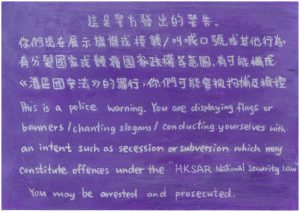 這是警方發出的警告。
你們現在展示旗幟或橫額/叫喊口號,或其他行為,
有分裂國家或顛覆國家政權等意圖,有可能構成
《港區國安法》的罪行,你們可能會被拘捕及檢控
This is a police warning. You are displaying flags or
banners / chanting slogans / conducting yourselves with
an intent such as secession or subversion, which may
constitute offences under the "HKSAR National Security Law
You may be arrested and prosecuted.